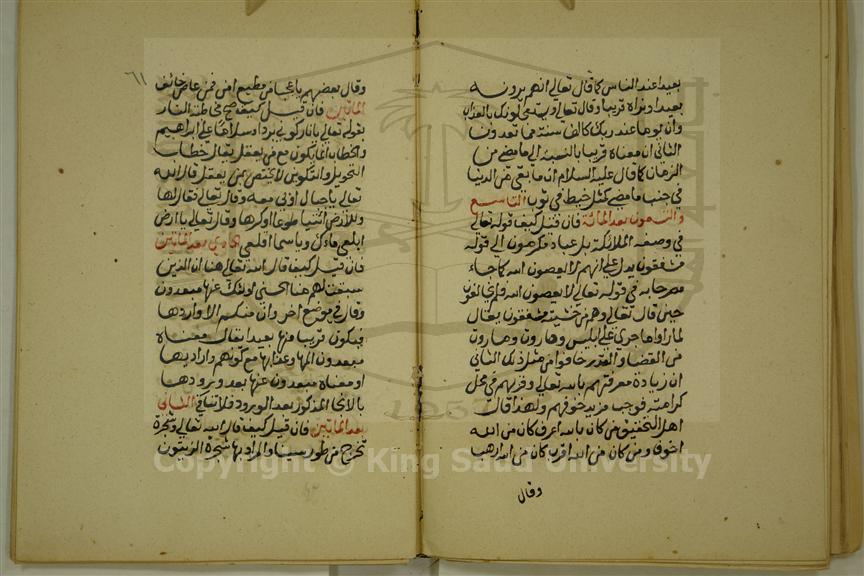 بعيدا عند الناس كما قال تعالى انهم يرونه
بعيدا ونراه قريبا وقال تعالى ويستعجلونك بالعذاب
وان يوما عند ربك كالف سنة مما تعدون
الثاني ان معناه قريبا بالنسبة الى ما مضى من
الزمان كما قال عليه السلام ان ما بقى من الدنيا
في جنب ما مضى كمثل خيط في ثوب التاسع
والتسعون بعد المائة فان قيل كيف قوله تعالى
في وصفه الملائكة بل عباد مكرمون الى قوله
مشفقون يدل على انهم لا يعصون الله كما جاء
مصرحا به في قوله تعالى لا يعصون الله
حين قال تعالى وهم من خشيته مشفقون يقال
لما راوا ما جرى على ابليس وهاروت وماروت
من القضاء والقدر خافوا من مثل ذلك الثاني
ان زيادة معرفتهم بالله تعالى وقربهم في محل
كرامته فوجب مزيد خوفهم ولهذا قال
اهل التحقيق من كان بالله اعرف كان من الله
اخوف ومن كان من الله اقرب كان من الله ارهب
وقال
٦١
وقال بعضهم يا عجبا من مطيع امن فمن عاص خائف
المائتين فان قيل كيف صح مخاطبة النار
بقوله تعالى يا نار كوني بردا وسلاما على ابراهيم
والخطاب انما يكون مع من يعقل يقال خطاب
التحويل والتكوين لا يختص بمن يعقل قال الله
تعالى يا جبال اوبى معه وقال تعالى فقال لها
وللارض ائتيا طوعا او كرها وقال تعالى يا ارض
ابلعى ماءك ويا سماء اقلعى الحادي بعد المائتين
فان قيل كيف قال الله تعالى هنا ان الذين
سبقت لهم منا الحسنى اولئك عنها مبعدون
وقال في موضع اخر وان منكم الا واردها
فيكون قريبا منها بعيدا يقال معناه
مبعدون المها وعذابها مع كونهم وارديها
او معناه مبعدون عنها بعد ورودها
بالانجا المذكور بعد الورود فلا تنافي الثاني
بعد المائتين فان قيل كيف قال الله تعالى وشجرة
تخرج من طور سيناء والمراد بها شجرة الزيتون
Copyright © King Saud University
1957